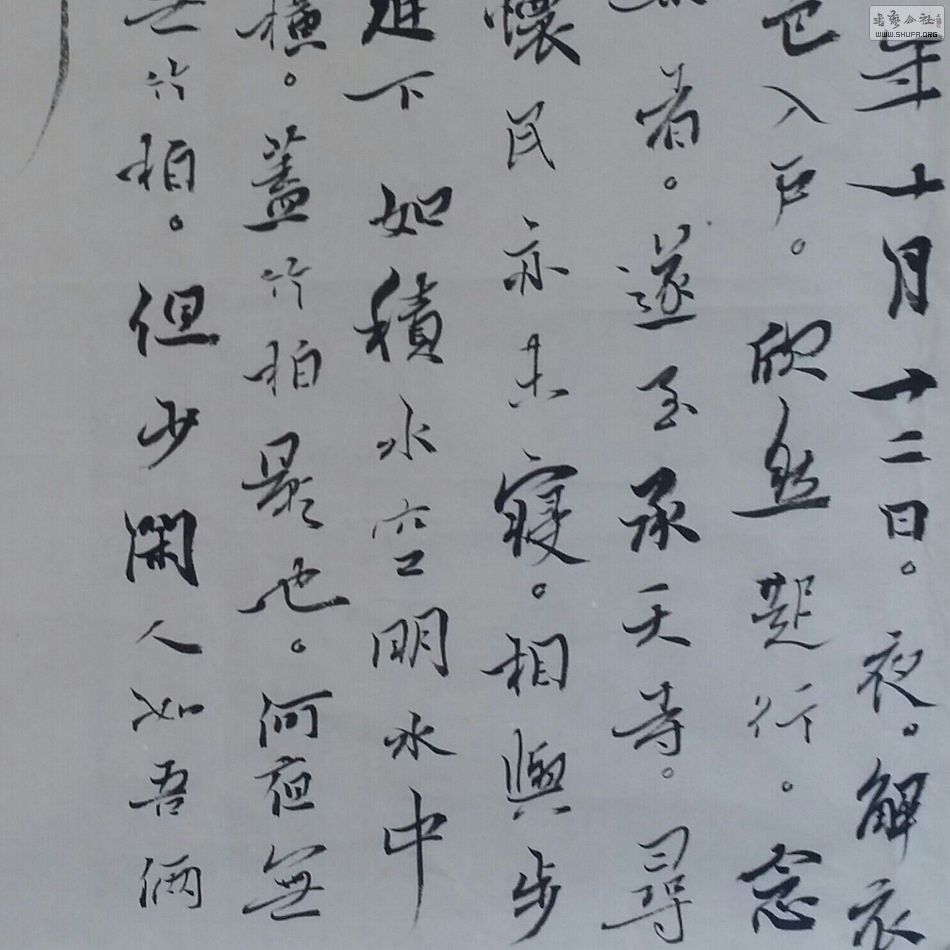 年十月十二日。夜。解衣
色入戶。欣然起行。念
者。遂至承天寺。尋
懷民亦未寢。相與步
下如積水空明水中
橫。蓋竹柏影也。何夜無
無竹柏。但少閑人如吾倆
書藝公社
WWW.SHUFA.ORG